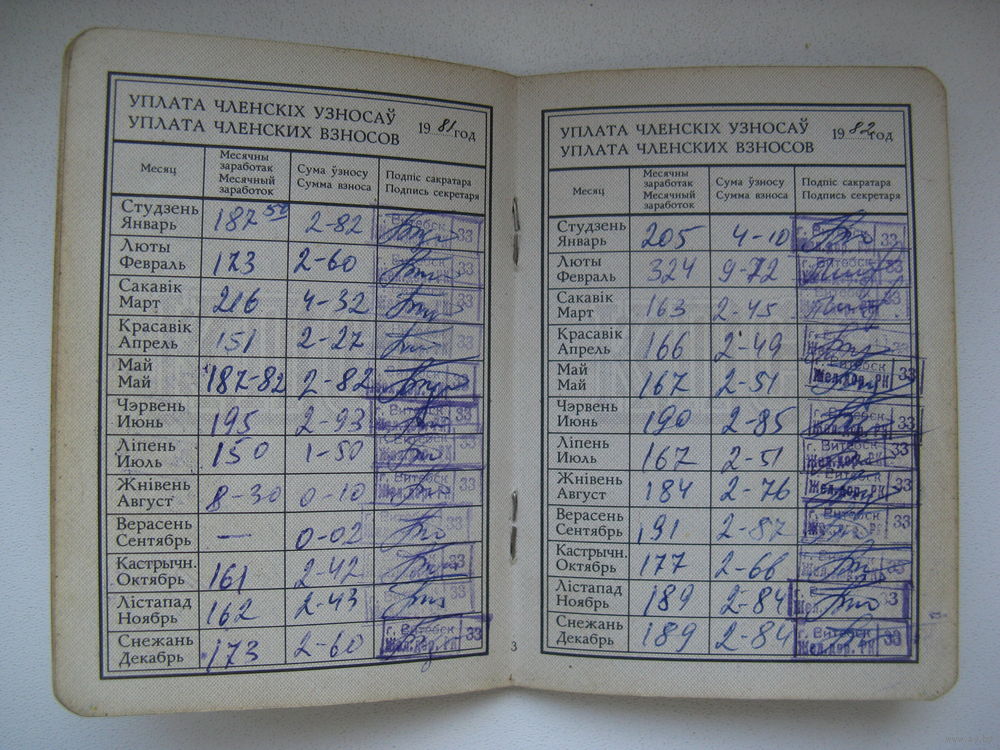 УПЛАТА ЧЛЕНСКІХ УЗНОСАЎ
УПЛАТА ЧЛЕНСКИХ ВЗНОСОВ
19 81 год
Месяц
Месячны заработак
Месячный заработок
Сума ўзносу
Сумма взноса
Подпіс сакратара
Подпись секретаря
Студзень
Январь 187 50 2-82
Люты
Февраль 173 2-60
Сакавік
Март 216 4-32
Красавік
Апрель 151 2-27
Май
Май 187-82 2-82
Чэрвень
Июнь 195 2-93
Ліпень
Июль 150 1-50
Жнівень
Август 8-30 0-10
Верасень
Сентябрь — 0-02
Кастрычн.
Октябрь 161 2-42
Лістапад
Ноябрь 162 2-43
Снежань
Декабрь 173 2-60
г. Витебск
Жел.дор. РК 33
3
УПЛАТА ЧЛЕНСКІХ УЗНОСАЎ
УПЛАТА ЧЛЕНСКИХ ВЗНОСОВ
19 82 год
Месяц
Месячны заработак
Месячный заработок
Сума ўзносу
Сумма взноса
Подпіс сакратара
Подпись секретаря
Студзень
Январь 205 4-10
Люты
Февраль 324 9-72
Сакавік
Март 163 2-45
Красавік
Апрель 166 2-49
Май
Май 167 2-51
Чэрвень
Июнь 190 2-85
Ліпень
Июль 167 2-51
Жнівень
Август 184 2-76
Верасень
Сентябрь 191 2-87
Кастрычн.
Октябрь 177 2-66
Лістапад
Ноябрь 189 2-84
Снежань
Декабрь 189 2-84
г. Витебск
Жел.дор. РК 33